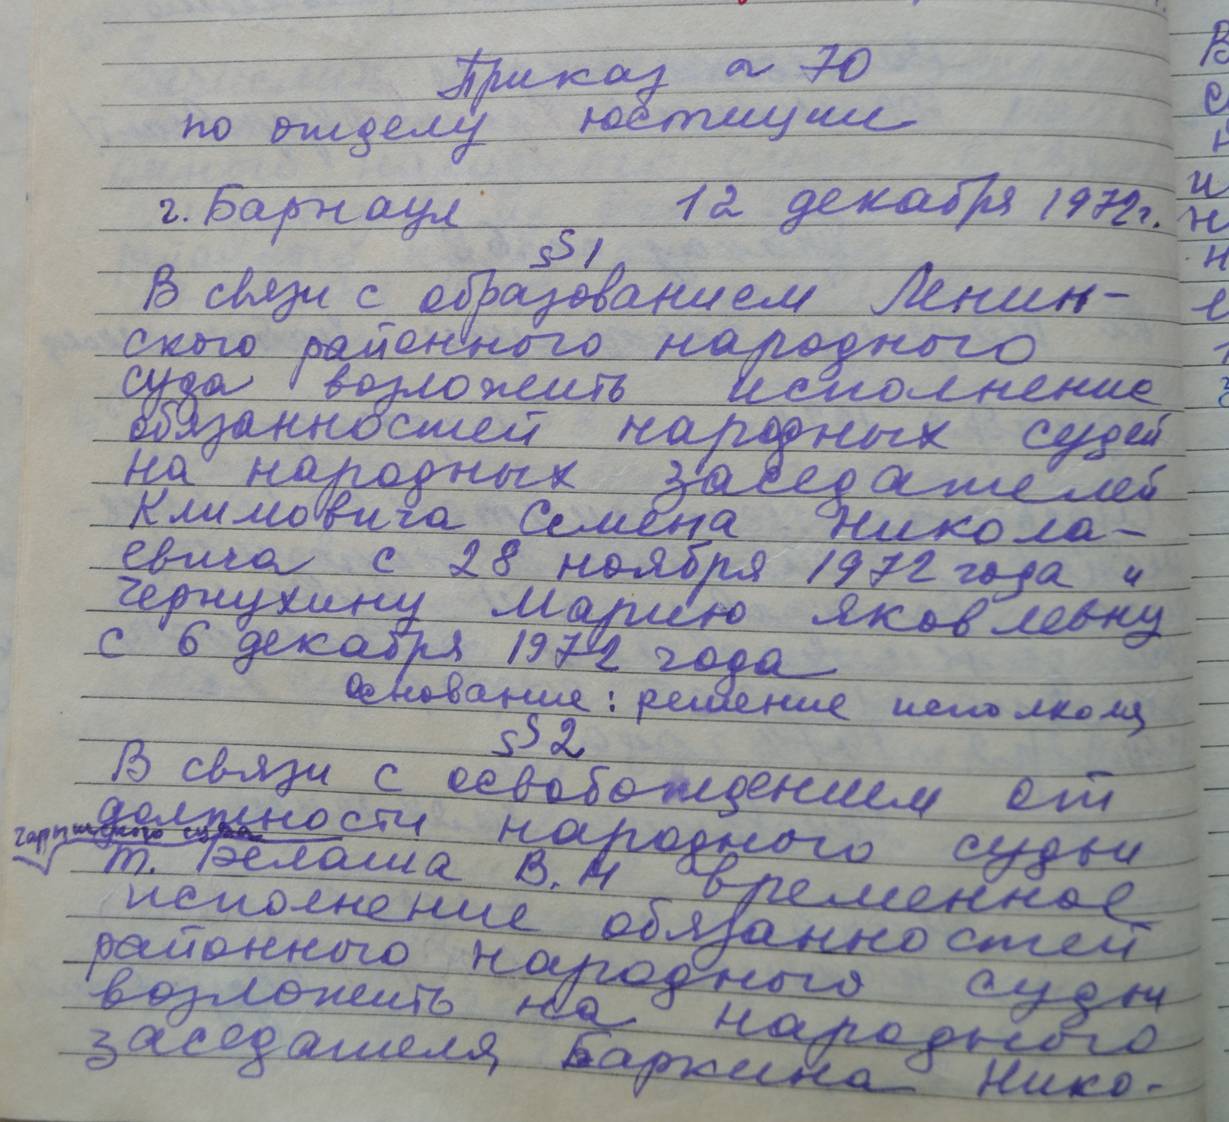 Приказ № 70
по отделу юстиции
г. Барнаул 12 декабря 1972г.
§1
В связи с образованием Ленин-
ского районного народного
суда возложить исполнение
обязанностей народных судей
на народных заседателей
Климовича Семена Никола-
евича с 28 ноября 1972 года и
Чернухину Марию Яковлевну
с 6 декабря 1972 года
Основание: решение исполкома
§2
В связи с освобождением от
должности народного судьи
т. Белаша В.М временное
исполнение обязанностей
районного народного судьи
возложить на народного
заседателя Баркина Нико-